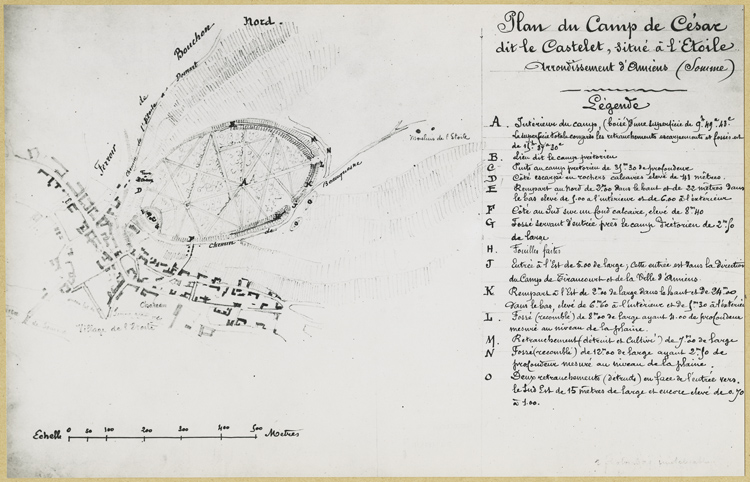 Plan du Camp de César
dit le Castelet, situé à l'Etoile
Arrondissement d'Amiens (Somme)
Légende
A. Intérieur du camp, (boisé) d'une superficie de 9h 49a 43c
La superficie totale compris les retranchements escarpements et fossés est
de
B. Lieu dit le camp pretorien
C Puits au camp pretorien de 31m30 de profondeur
D Côté escarpé en rochers calcaires élevé de 41 mètres.
E Rempart au Nord de dans le haut et de 22 mètres dans
le bas élevé de 1.00 à l'intérieur et de 6.00 à l'extérieur
F Côté au Sud sur un fond calcaire, élevé de 8m40
G Fossé servant d'entrée près le camp Prétorien de 2m50
de large
H. Fouilles faites
J Entrée à l'Est de 5.00 de large; cette entrée est dans la Direction
du Camp de Tirancourt et de la Ville d'Amiens.
K Rempart à l'Est de de large dans le haut et de 24m20
dans le bas, élevé de 6m60 à l'intérieur et de à l'extérieur
L. Fossé (recomblé) de 8m00 de large ayant 4.00 de profondeur
mesuré au niveau de la plaine.
M. Retranchement (détruit et Cultivé) de 7m20 de large
N Fossé (recomblé) de 12m00 de large ayant 2m50 de
profondeur mesuré au niveau de la plaine.
O Deux retranchements (détruits) en face de l'entrée vers
le Sud Est de 15 mètres de large et encore élevé de 0.70
à 1.00.
Nord.
Bouchon
de
Terroir
Moulins de l'Etoile
A
Chemin de
Château
Village de l'Etoile
Echelle 0 50 100 200 300 400 500 Metres